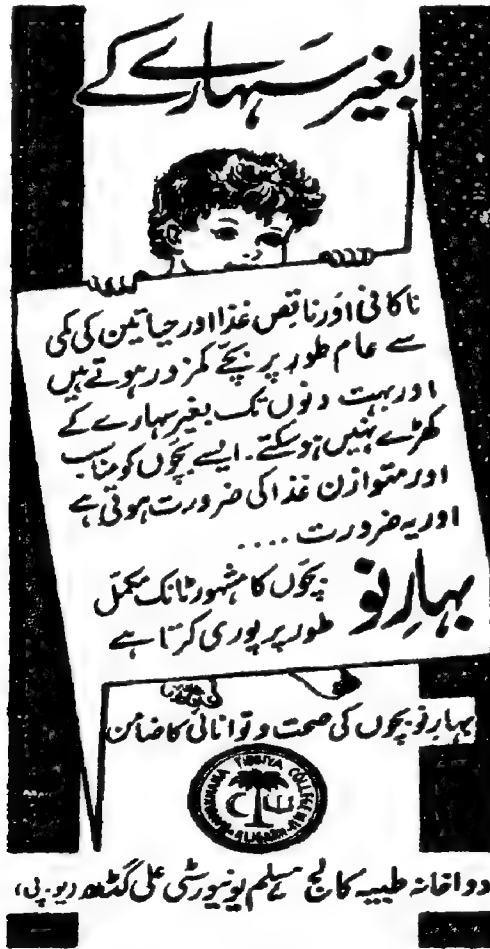 بغیر سہارے کے
ناکافی اور ناقص غذا اور حیاتین کی کمی
سے عام طور پر بچّے کمزور ہوتے ہیں
اور بہت دنوں تک بغیر سہارے کے
کھڑے نہیں ہو سکتے۔ ایسے بچّوں کو مناسب
اور متوازن غذا کی ضرورت ہوتی ہے
اور یہ ضرورت ....
بہارِ نو
بچّوں کا مشہور ٹانک مکمّل
طور پر پوری کرتا ہے
بہارِ نو بچوں کی صحت و توانائی کا ضامن
DAWAKHANA TIBBIYA COLLEGE
ALIGARH
دواخانہ طبیہ کالج مسلم یونیورسٹی علی گڈھ (یو۔پی)